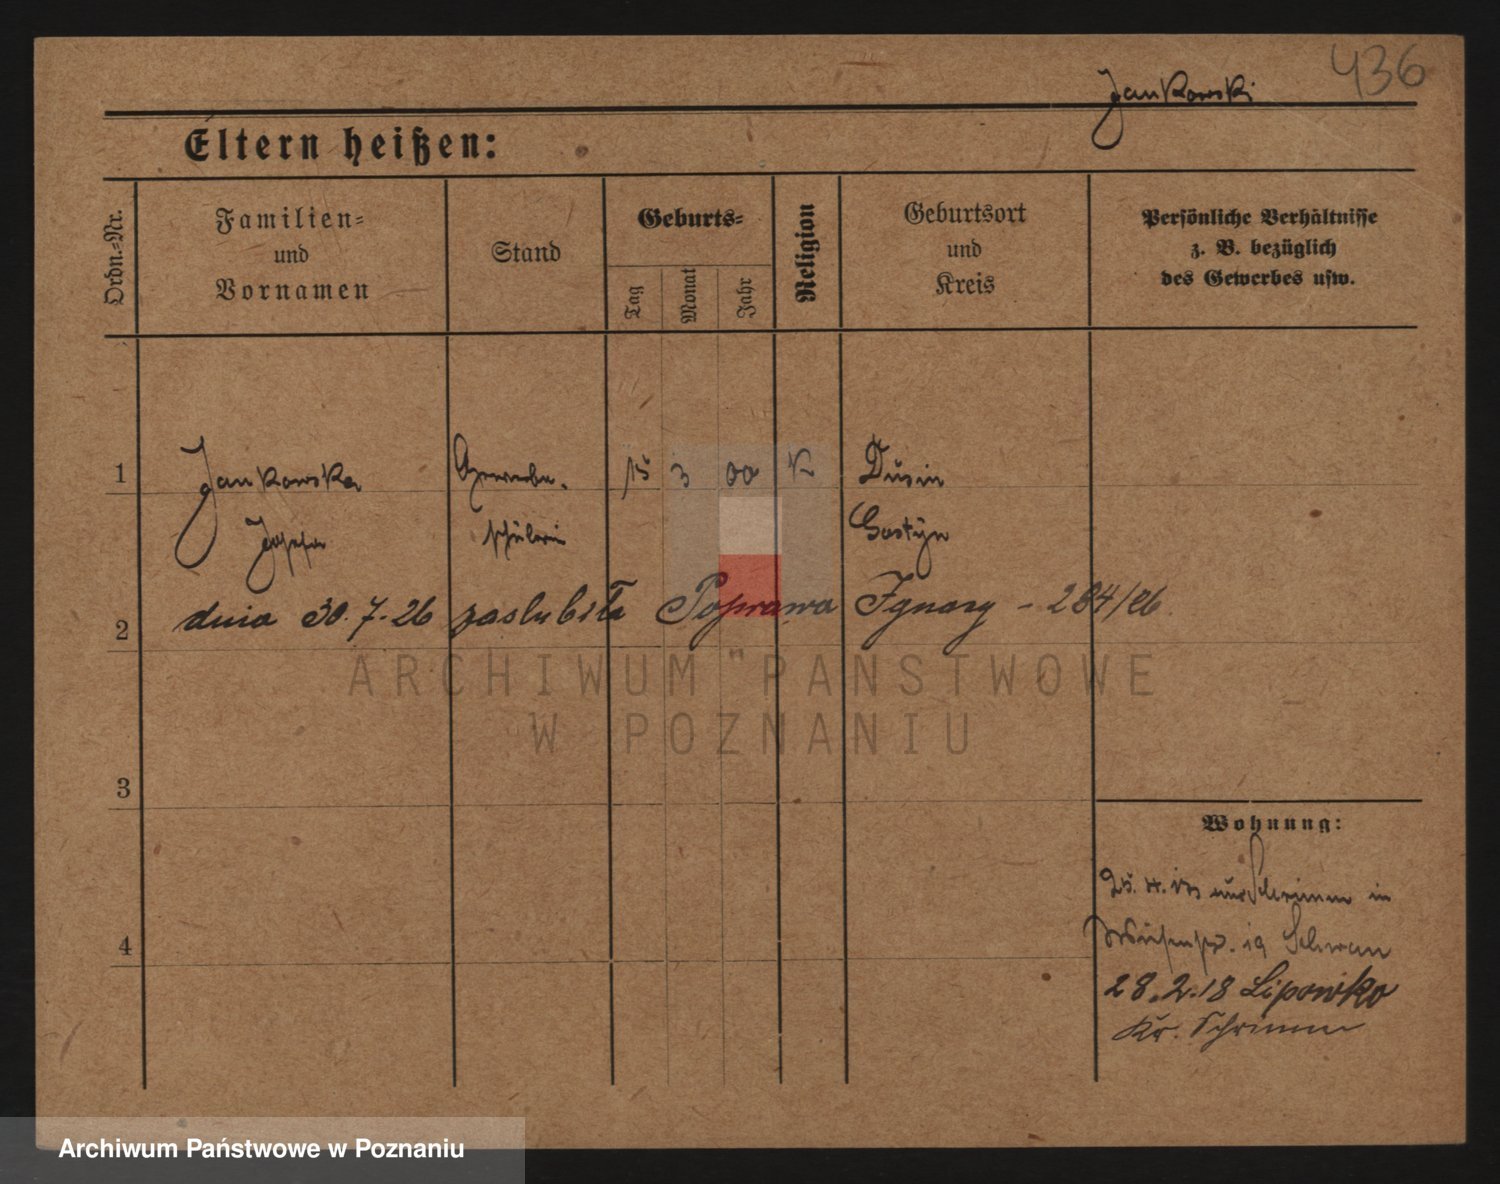 436
Jankowski
Eltern heißen:
Ordn.-Nr.
Familien- und Vornamen
Stand
Geburts-
Tag
Monat
Jahr
Religion
Geburtsort und Kreis
Persönliche Verhältnisse z. B. bezüglich des Gewerbes usw.
1
Jankowska
Gewerbe-
15 3 00
K
Dusin
Josefa
schülerin
Gostyn
2
dnia 30.7.26 zaślubiła Poprawa Ignacy - 284/26
ARCHIWUM PAŃSTWOWE
W POZNANIU
3
Wohnung:
aus Schrimm in
4
19 Schwan
28.2.18 Lipowko
Kr. Schrimm
Archiwum Państwowe w Poznaniu